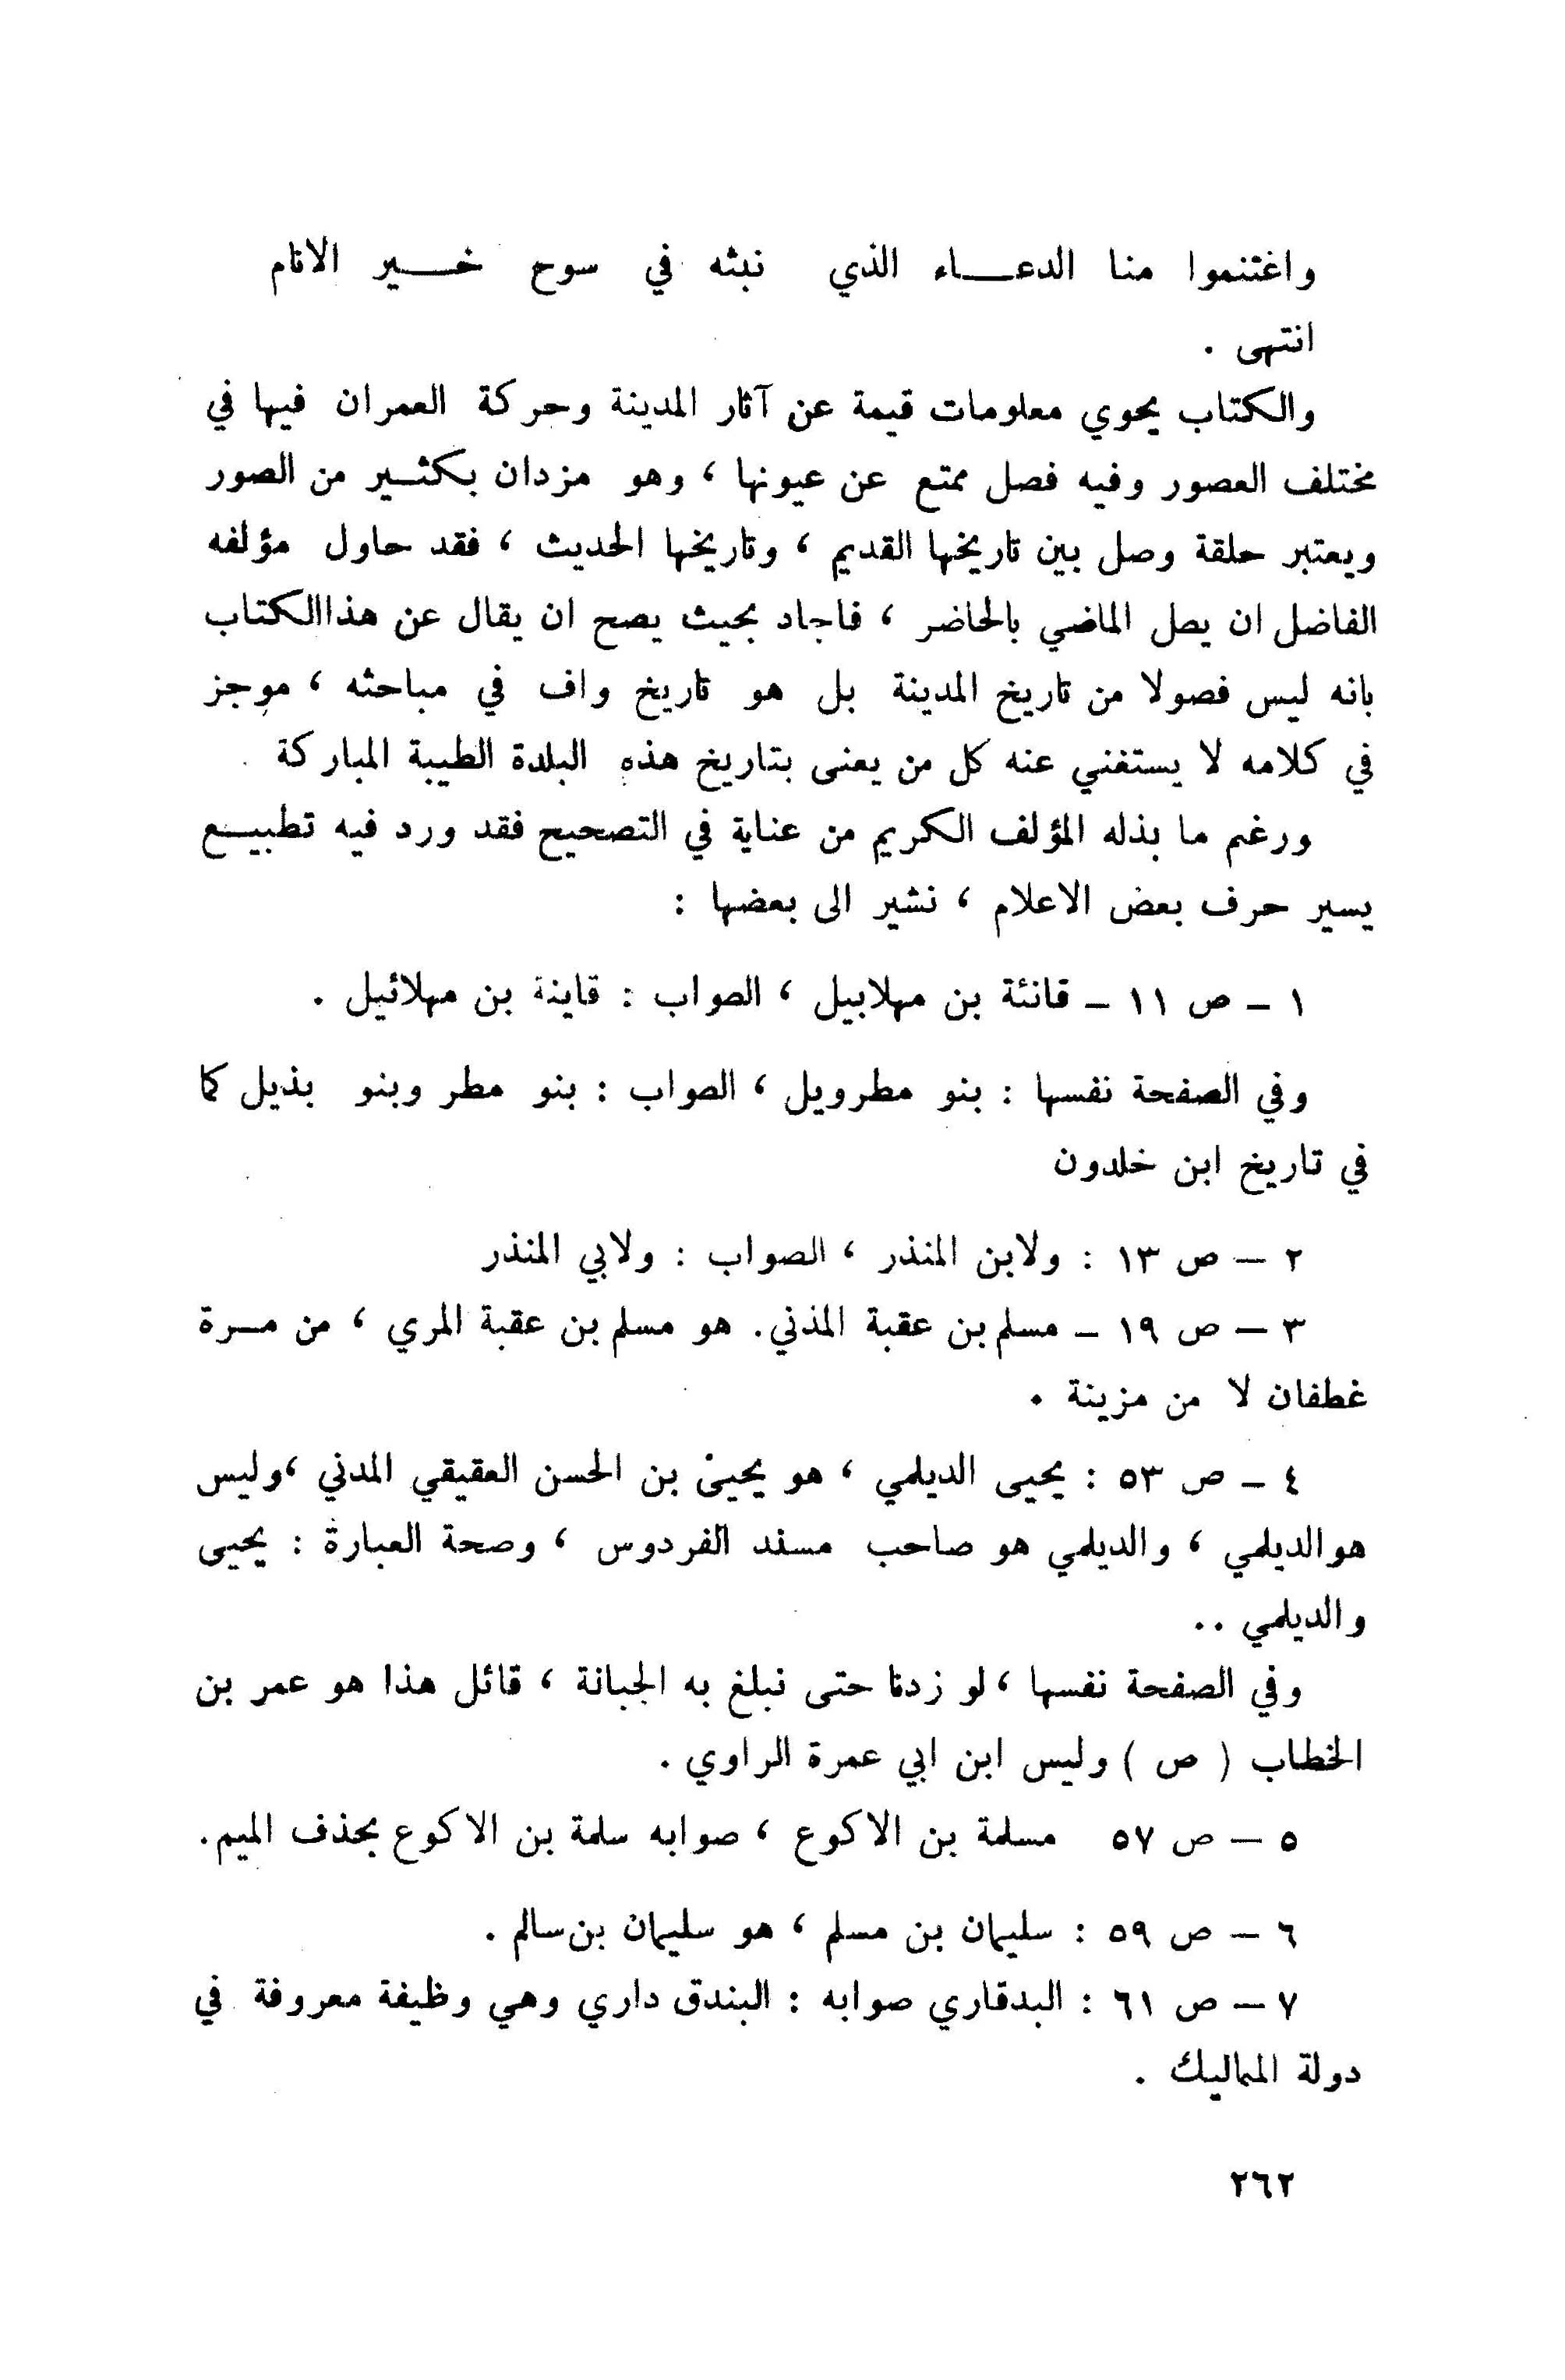 واغتنموا منا الدعـــاء الذي نبثه في سوح خـــير الانام
انتهى .
والكتاب يحوي معلومات قيمة عن آثار المدينة وحركة العمران فيها في
مختلف العصور وفيه فصل ممتع عن عيونها ، وهو مزدان بكثـير من الصور
ويعتبر حلقة وصل بين تاريخها القديم ، وتاريخها الحديث ، فقد حاول مؤلفه
الفاضل ان يصل الماضي بالحاضر ، فاجاد بحيث يصح ان يقال عن هذاالكتاب
بانه ليس فصولا من تاريخ المدينة بل هو تاريخ واف في مباحثه ، موجز
في كلامه لا يستغني عنه كل من يعنى بتاريخ هذه البلدة الطيبة المباركة .
ورغم ما بذله المؤلف الكريم من عناية في التصحيح فقد ورد فيه تطبيـع
يسير حرف بعض الاعلام ، نشير الى بعضها :
١ – ص ١١ – قانئة بن مهلابيل ، الصواب : قاينة بن مهلائيل .
وفي الصفحة نفسها : بنو مطرويل ، الصواب : بنو مطر وبنو بذيل كما
في تاريخ ابن خلدون
٢ – ص ١٣ : ولابن المنذر ، الصواب : ولابي المنذر
٣ – ص ١٩ – مسلم بن عقبة المذني. هو مسلم بن عقبة المري ، من مـرة
غطفان لا من مزينة .
٤ – ص ٥٣ : يحيى الديلمي ، هو يحيى بن الحسن العقيقي المدني ،وليس
هوالديلمي ، والديلمي هو صاحب مسند الفردوس ، وصحة العبارة : يحيى
والديلمي ..
وفي الصفحة نفسها ،لو زدنا حتى نبلغ به الجبانة ، قائل هذا هو عمر بن
الخطاب ( ص ) وليس ابن ابي عمرة الراوي .
٥ – ص ٥٧ مسلمة بن الاكوع ، صوابه سلمة بن الاكوع بحذف الميم.
٦ – ص ٥٩ : سليمان بن مسلم ، هو سليمان بن سالم .
٧ – ص ٦١ : البدقاري صوابه : البندق داري وهي وظيفة معروفة في
دولة المماليك .
٢٦٢